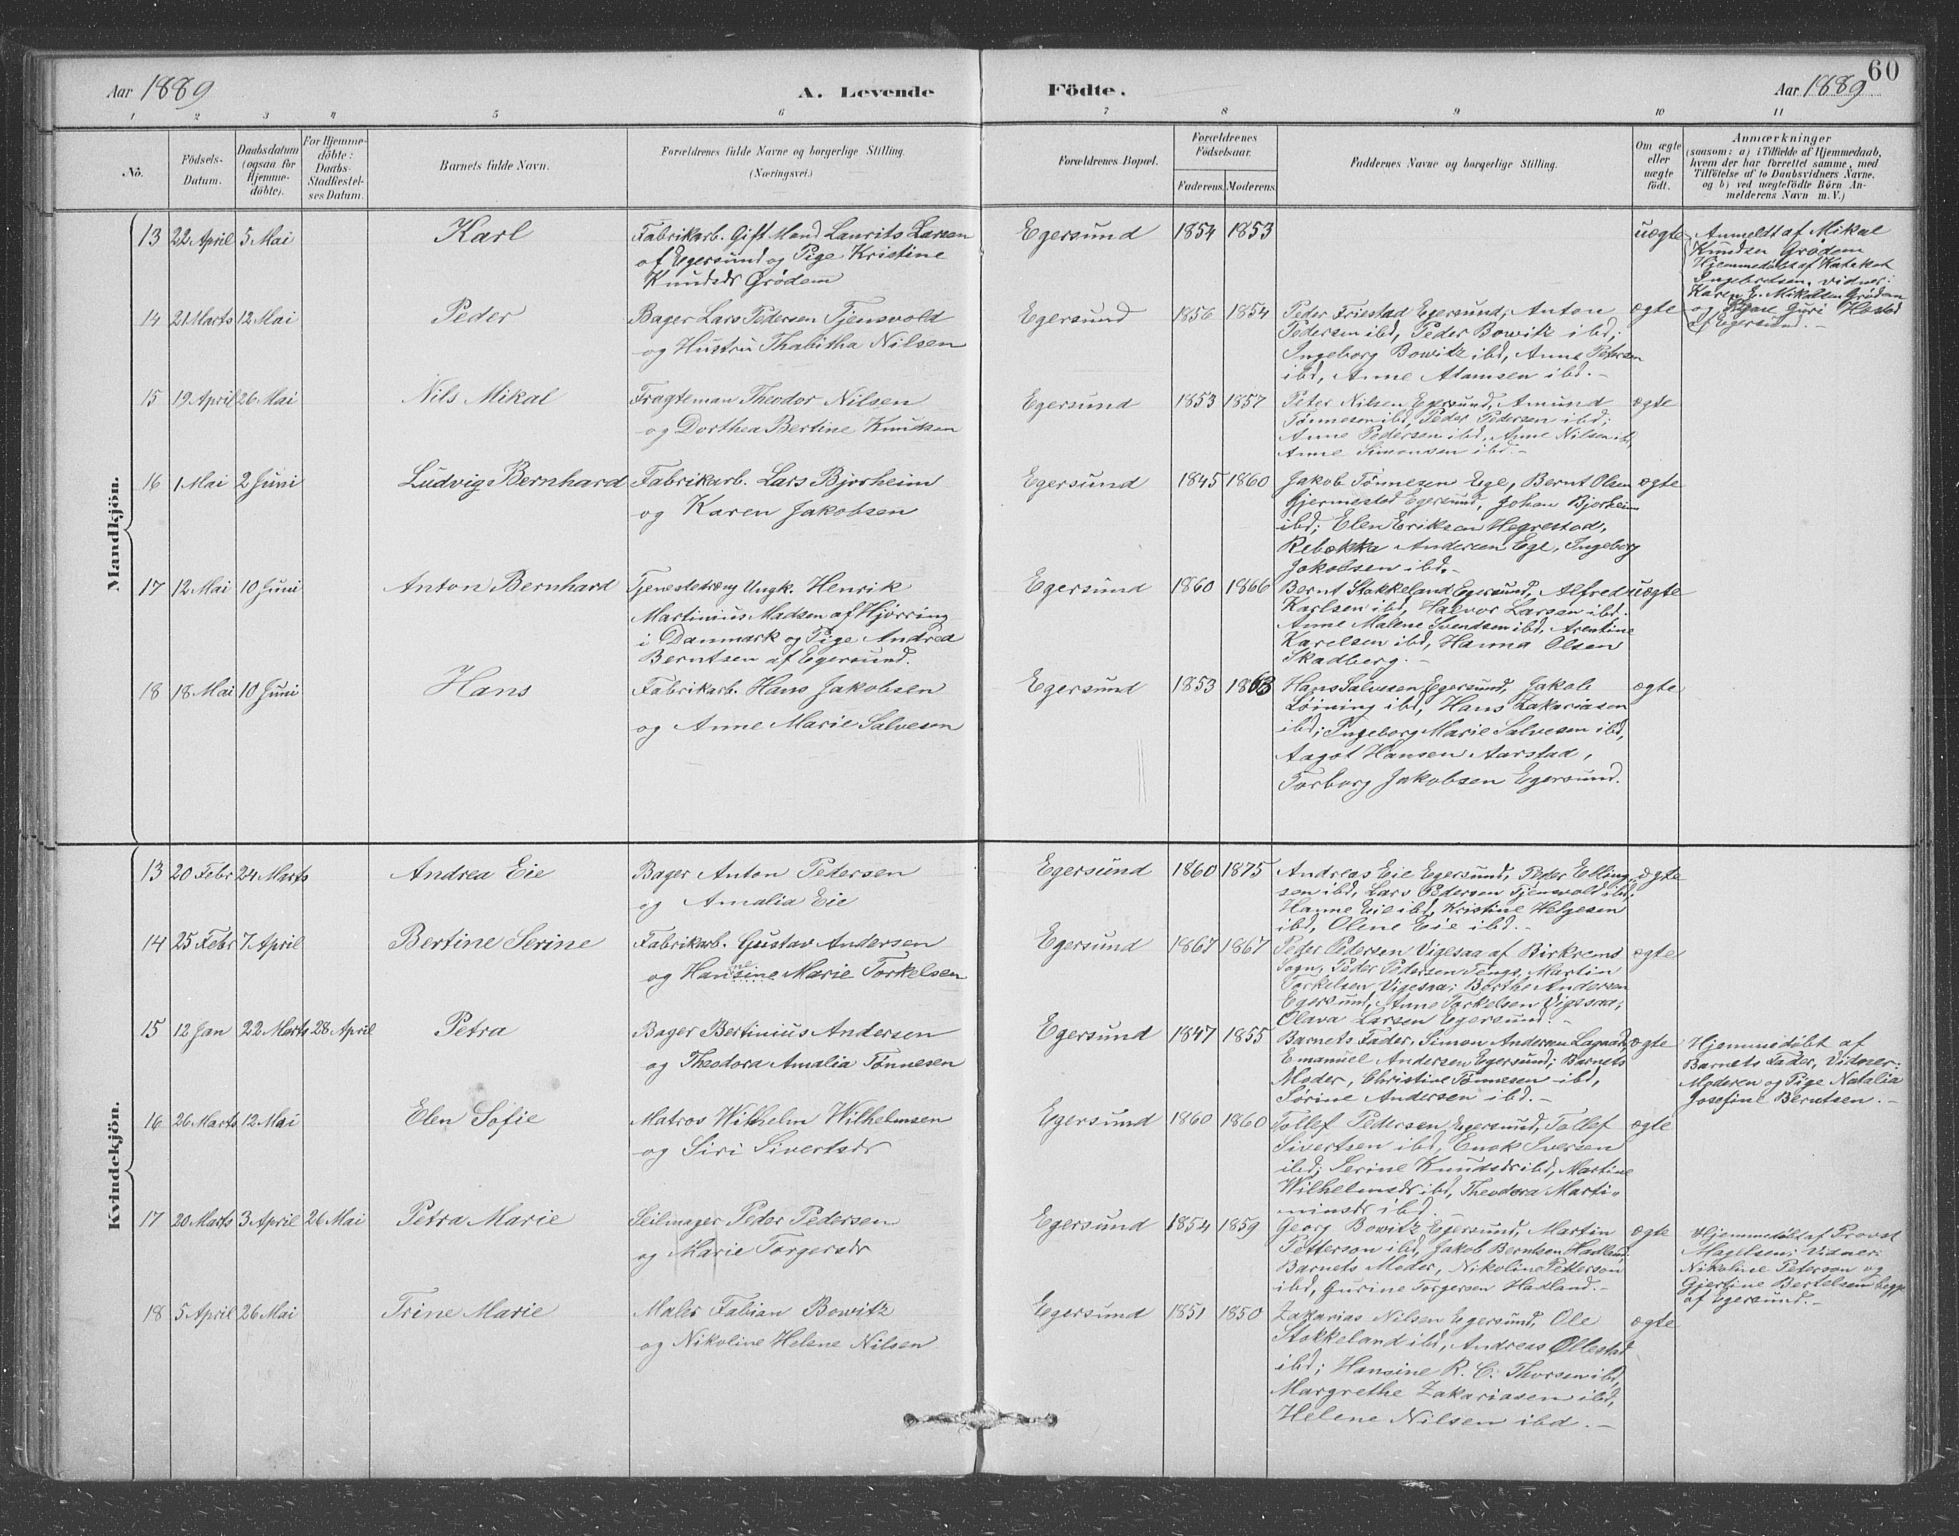 60
Aar 1889
A. Levende
Födte.
Aar 1889
1 2 3 4 5 6 7 8 9 10 11
No.
Födsels-
Datum.
Daabsdatum
(ogsaa for
Hjemme-
döbte).
For Hjemme-
döbte:
Daabs-
Stadfæstel-
ses Datum.
Barnets fulde Navn.
Forældrenes fulde Navne og borgerlige Stilling.
(Næringsvei.)
Forældrenes Bopæl.
Forældrenes
Födselsaar.
Faderens. Moderens.
Faddernes Navne og borgerlige Stilling.
Om ægte
eller
uægte
født.
Anmærkninger
(saasom: a) i Tilfælde af Hjemmedaab,
hvem der har forrettet samme, med
Tilföielse af to Daabsvidners Navne,
og b) ved uægtefödte Börn An-
melderens Navn m. V.)
Mandkjön.
13 22 April 5 Mai
Karl
Fabrikarb. Gift Mand Laurits Larsen
af Egersund og Pige Kristine
Knudsdr Grødem
Egersund 1854 1853
uægte
Anmeldt af Mikal
Knudsen Grødem
Hjemmedøbt af Kateket
Ingebretsen, Vidner:
Karen E. Mikalsen Grødem
og Pigen Guri Hostad
af Egersund. -
14 21 Marts 12 Mai
Peder
Bager Lars Pedersen Tjensvold
og Hustru Thabitha Nilsen
Egersund 1856 1854
Peder Friestad Egersund, Anton
Pedersen ibd, Peder Bowitz ibd;
Ingeborg Bowitz ibd, Anne Petersen
ibd, Anne Adamsen ibd. -
ægte
15 19 April 26 Mai
Nils Mikal
Fragteman Theodor Nilsen
og Dorthea Bertine Knudsen
Egersund 1853 1857
Peter Nilsen Egersund, Amund
Tønnesen ibd, Peder Pedersen ibd;
Anne Pedersen ibd, Anne Nilsen ib,
Anne Simonsen ibd. -
ægte
16 1 Mai 2 Juni
Ludvig Bernhard
Fabrikarb. Lars Bjorheim
og Karen Jakobsen
Egersund 1845 1860
Jakob Tønnesen Ege, Bernt Olsen
Gjermestad Egersund, Johan Bjorheim
ibd; Elen Eriksen Hegrestad,
Rebekka Andersen Ege, Ingeborg
Jakobsen ibd. -
ægte
17 12 Mai 10 Juni
Anton Bernhard
Tjenestedreng Ungk. Henrik
Martinius Madsen af Hjørring
i Danmark og Pige Andrea
Berntsen af Egersund.
Egersund 1860 1866
Bernt Stokkeland Egersund, Alfred
Karlsen ibd, Halvor Larsen ibd.
Anne Malene Svendsen ibd, Arentine
Karelsen ibd, Hanna Olsen
Skadberg. -
uægte
18 18 Mai 10 Juni
Hans
Fabrikarb. Hans Jakobsen
og Anne Marie Salvesen
Egersund 1853 1863
Hans Salvesen Egersund, Jakob
Løining ibd, Hans Zakariasen
ibd; Ingeborg Marie Salvesen ibd,
Aagot Hansen Aarstad,
Torborg Jakobsen Egersund.
ægte
Kvindekjön.
13 20 Febr 24 Marts
Andrea Eie
Bager Anton Pedersen
og Amalia Eie
Egersund 1860 1875
Andreas Eie Egersund, Peder Elling-
sen ibd, Lars Pedersen Tjensvold ibd;
Hanne Eie ibd, Kristine Helgesen
ibd, Olene Eie ibd. -
ægte
14 25 Febr 7 April
Bertine Serine
Fabrikarb. Gustav Andersen
og Hansine Marie Torkelsen
Egersund 1867 1867
Peder Pedersen Vigesaa af Birkrems
Sogn, Peder Pedersen Tengs, Martin
Torkelsen Vigesaa; Berthe Andersen
Egersund, Anne Torkelsen Vigesaa;
Olava Larsen Egersund. -
ægte
15 12 Jan 22 Marts 28 April
Petra
Bager Bertinius Andersen
og Theodora Amalia Tønnesen
Egersund 1847 1855
Barnets Fader, Simon Andersen Lagaard,
Emanuel Andersen Egersund; Barnets
Moder, Christine Tønnesen ibd,
Sorine Andersen ibd. -
ægte
Hjemmedøbt af
Barnets Fader, Vidner:
Moderen og Pige Natalia
Josefine Berntsen. -
16 26 Marts 12 Mai
Elen Sofie
Matros Wilhelm Wilhelmsen
og Siri Sivertsdr
Egersund 1860 1860
Tollef Pedersen Egersund, Tollef
Sivertsen ibd, Enok Iversen
ibd; Serine Knudsdr ibd, Martine
Wilhelmsdr ibd, Theodora Marti-
minsdr ibd.
ægte
17 20 Marts 3 April 26 Mai
Petra Marie
Seilmager Peder Pedersen
og Marie Torgersdr
Egersund 1854 1859
Georg Bowitz Egersund, Martin
Petterson ibd, Jakob Berntsen Hadland;
Barnets Moder, Nikoline Petterson
ibd, Gurine Torgersen Hadland. -
ægte
Hjemmedøbt af Provst
Magelsen; Vidner:
Nikoline Peterson og
Gjertine Bertelsen begge
af Egersund. -
18 5 April 26 Mai
Trine Marie
Maler Fabian Bowitz
og Nikoline Helene Nilsen
Egersund 1851 1850
Zakarias Nilsen Egersund, Ole
Stokkeland ibd, Andreas Øllestad
ibd; Hansine R. C. Thorsen ibd,
Margrethe Zakariasen ibd,
Helene Nilsen ibd. -
ægte